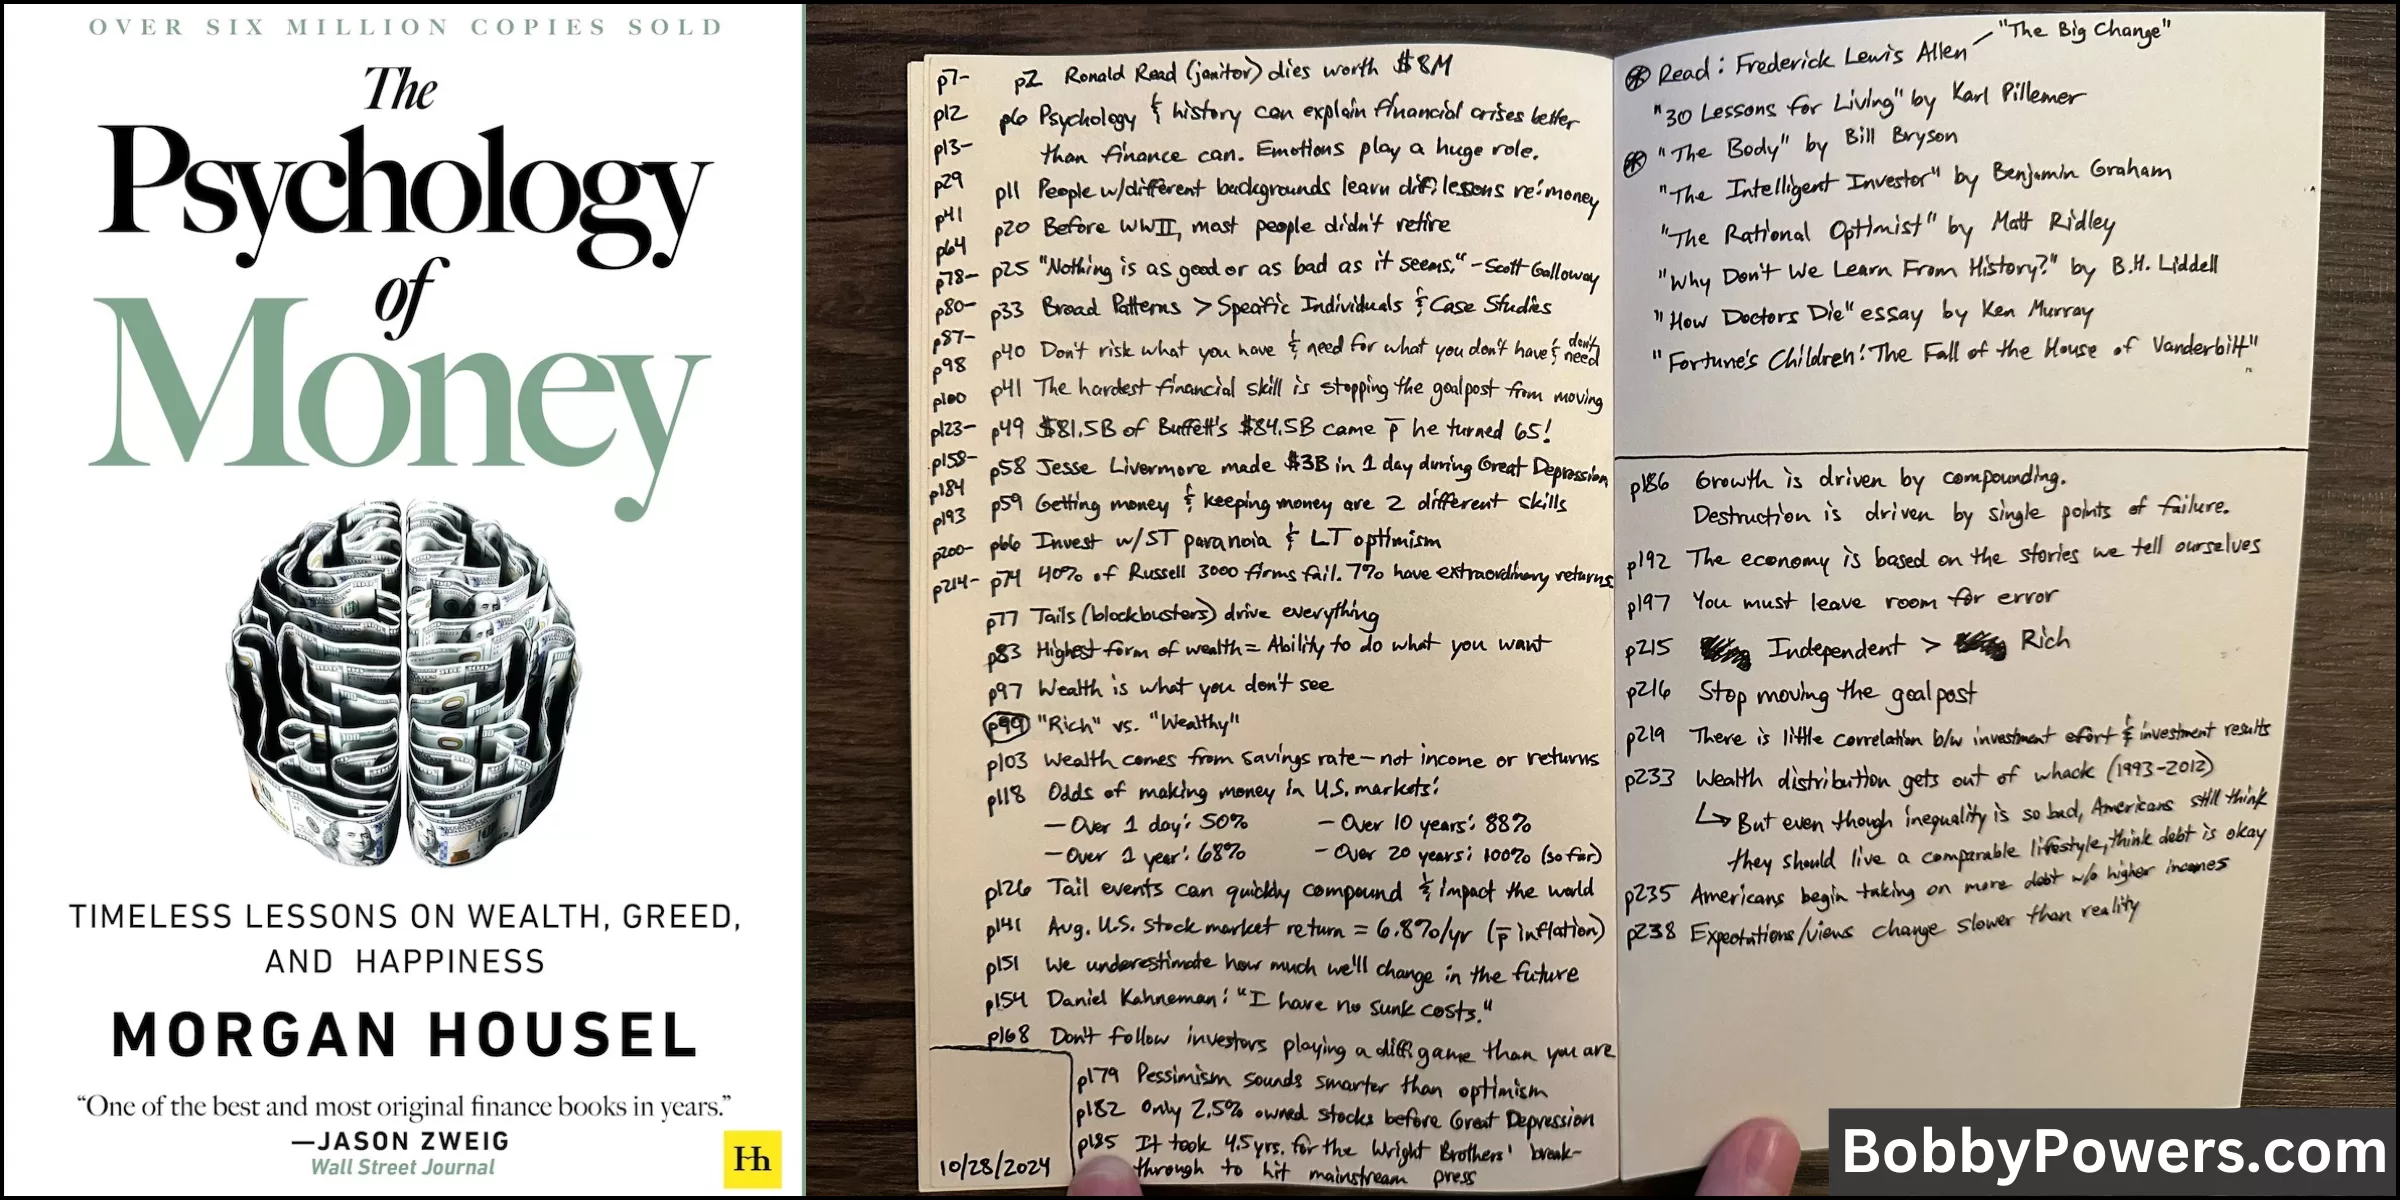 OVER SIX MILLION COPIES SOLD
The
Psychology
of
Money
TIMELESS LESSONS ON WEALTH, GREED,
AND HAPPINESS
MORGAN HOUSEL
“One of the best and most original finance books in years.”
—JASON ZWEIG
Wall Street Journal
Hh
p7-
p12
p13-
p29
p41
p64
p78-
p80-
p87-
p98
p100
p123-
p158-
p184
p193
p200-
p214-
p2 Ronald Read (janitor) dies worth $8M
p6 Psychology & history can explain financial crises better
than finance can. Emotions play a huge role.
p11 People w/different backgrounds learn diff. lessons re: money
p20 Before WWII, most people didn't retire
p25 "Nothing is as good or as bad as it seems." -Scott Galloway
p33 Broad Patterns > Specific Individuals & Case Studies
p40 Don't risk what you have & need for what you don't have & don't need
p41 The hardest financial skill is stopping the goalpost from moving
p49 $81.5B of Buffett's $84.5B came p̄ he turned 65!
p58 Jesse Livermore made $3B in 1 day during Great Depression
p59 Getting money & keeping money are 2 different skills
p66 Invest w/ST paranoia & LT optimism
p74 40% of Russell 3000 firms fail. 7% have extraordinary returns
p77 Tails (blockbusters) drive everything
p83 Highest form of wealth = Ability to do what you want
p97 Wealth is what you don't see
p99 "Rich" vs. "Wealthy"
p103 Wealth comes from savings rate — not income or returns
p118 Odds of making money in U.S. markets:
— Over 1 day: 50% — Over 10 years: 88%
— Over 1 year: 68% — Over 20 years: 100% (so far)
p126 Tail events can quickly compound & impact the world
p141 Avg. U.S. stock market return = 6.8%/yr (p̄ inflation)
p151 We underestimate how much we'll change in the future
p154 Daniel Kahneman: "I have no sunk costs."
p168 Don't follow investors playing a diff. game than you are
p179 Pessimism sounds smarter than optimism
p182 Only 2.5% owned stocks before Great Depression
p185 It took 4.5 yrs. for the Wright Brothers' break-
through to hit mainstream press
10/28/2024
Read: Frederick Lewis Allen — "The Big Change"
"30 Lessons for Living" by Karl Pillemer
"The Body" by Bill Bryson
"The Intelligent Investor" by Benjamin Graham
"The Rational Optimist" by Matt Ridley
"Why Don't We Learn From History?" by B.H. Liddell
"How Doctors Die" essay by Ken Murray
"Fortune's Children: The Fall of the House of Vanderbilt"
p186 Growth is driven by compounding.
Destruction is driven by single points of failure.
p192 The economy is based on the stories we tell ourselves
p197 You must leave room for error
p215 Independent > Rich
p216 Stop moving the goalpost
p219 There is little correlation b/w investment efort & investment results
p233 Wealth distribution gets out of whack (1993-2012)
↳ But even though inequality is so bad, Americans still think
they should live a comparable lifestyle, think debt is okay
p235 Americans begin taking on more debt w/o higher incomes
p238 Expectations/views change slower than reality
BobbyPowers.com